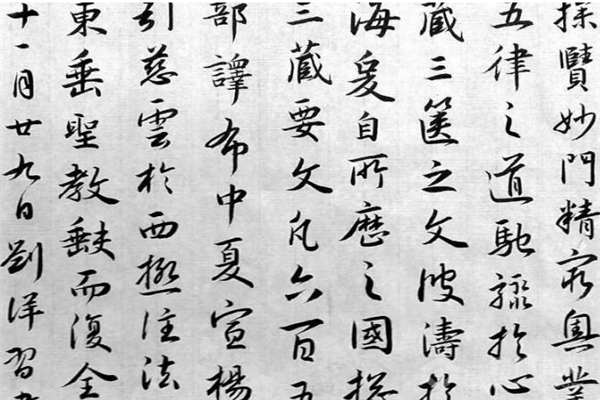 探賾妙門精窮奧業
五律之道馳驟於心
藏三篋之文波濤於
海爰自所歷之國摠
三藏要文凡六百五
部譯布中夏宣揚
引慈雲於西極注法
東垂聖教缺而復全
十一月廿九日劉洋習